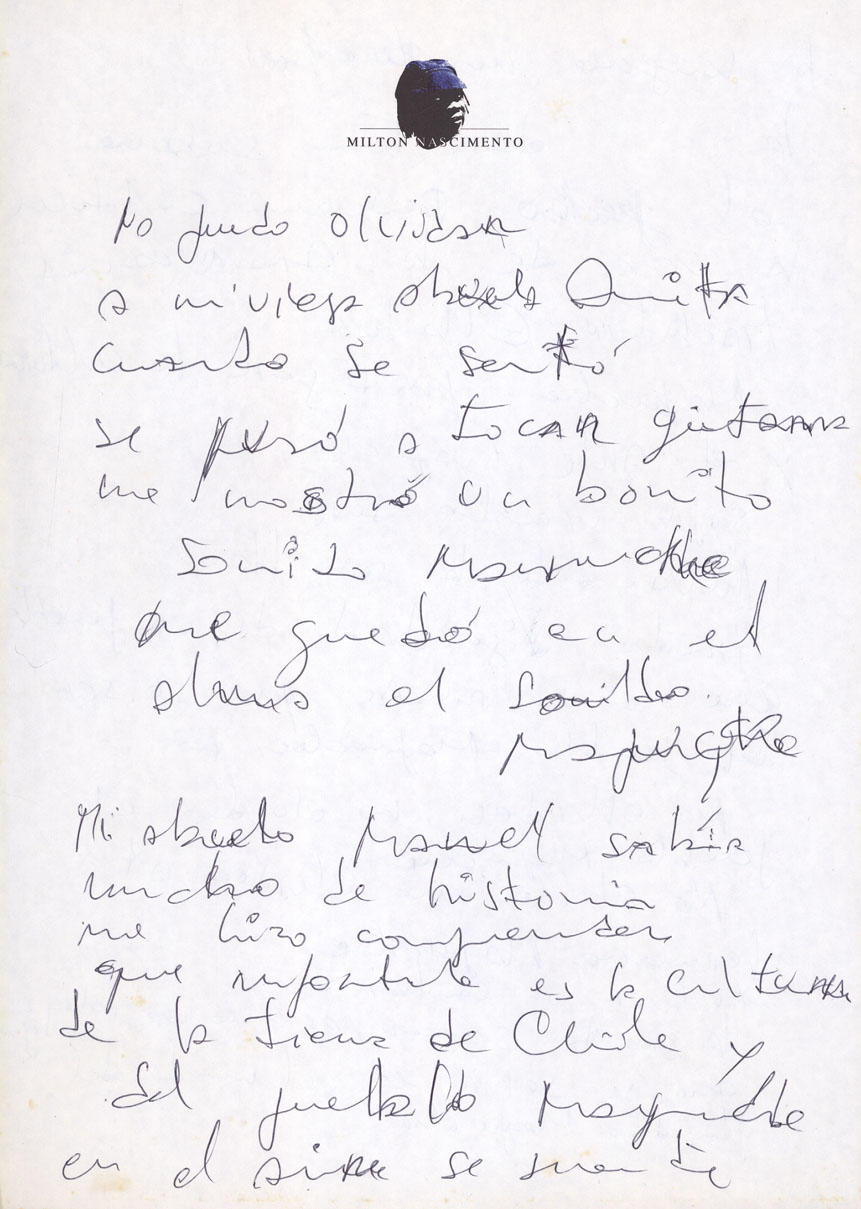 MILTON NASCIMENTO
No puedo olvidar
a mi vieja abuela Anita
cuando se sentó
se puso a tocar guitarra
me mostró un bonito
sonido Mapuche
que quedó en el
alma el sonido
Mapuche
Mi abuelo Manuel sabía
mucho de historia
me hizo comprender
que importante es la cultura
de la tierra de Chile y
del pueblo Mapuche
en el aire se siente